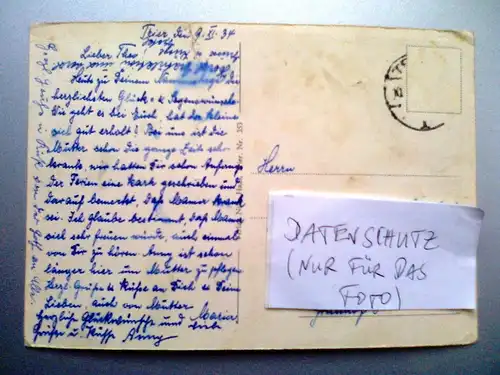 Trier, den 9. XI. 34
Lieber Theo!
Heute zu Deinem Namenstage die
herzlichsten Glück- & Segenswünsche.
Wie geht es bei Euch, hat der Kleine
sich gut erholt? Bei uns ist die
Mutter schon die ganze Zeit sehr
krank, wir hatten Dir schon Anfangs
der Ferien eine Kart geschrieben und
darauf bemerkt, daß Mama krank
sei. Ich glaube bestimmt, daß Mama
sich sehr freuen würde, auch einmal
von Dir zu hören. Anny ist schon
länger hier um Mutter zu pflegen.
Herzl. Grüße & Küsse an Dich & Deine
Lieben, auch von Mutter
herzliche Glückwünsche und Maria.
Grüße u. Küsse Anny
Herrn
DATENSCHUTZ
(NUR FÜR DAS
FOTO)